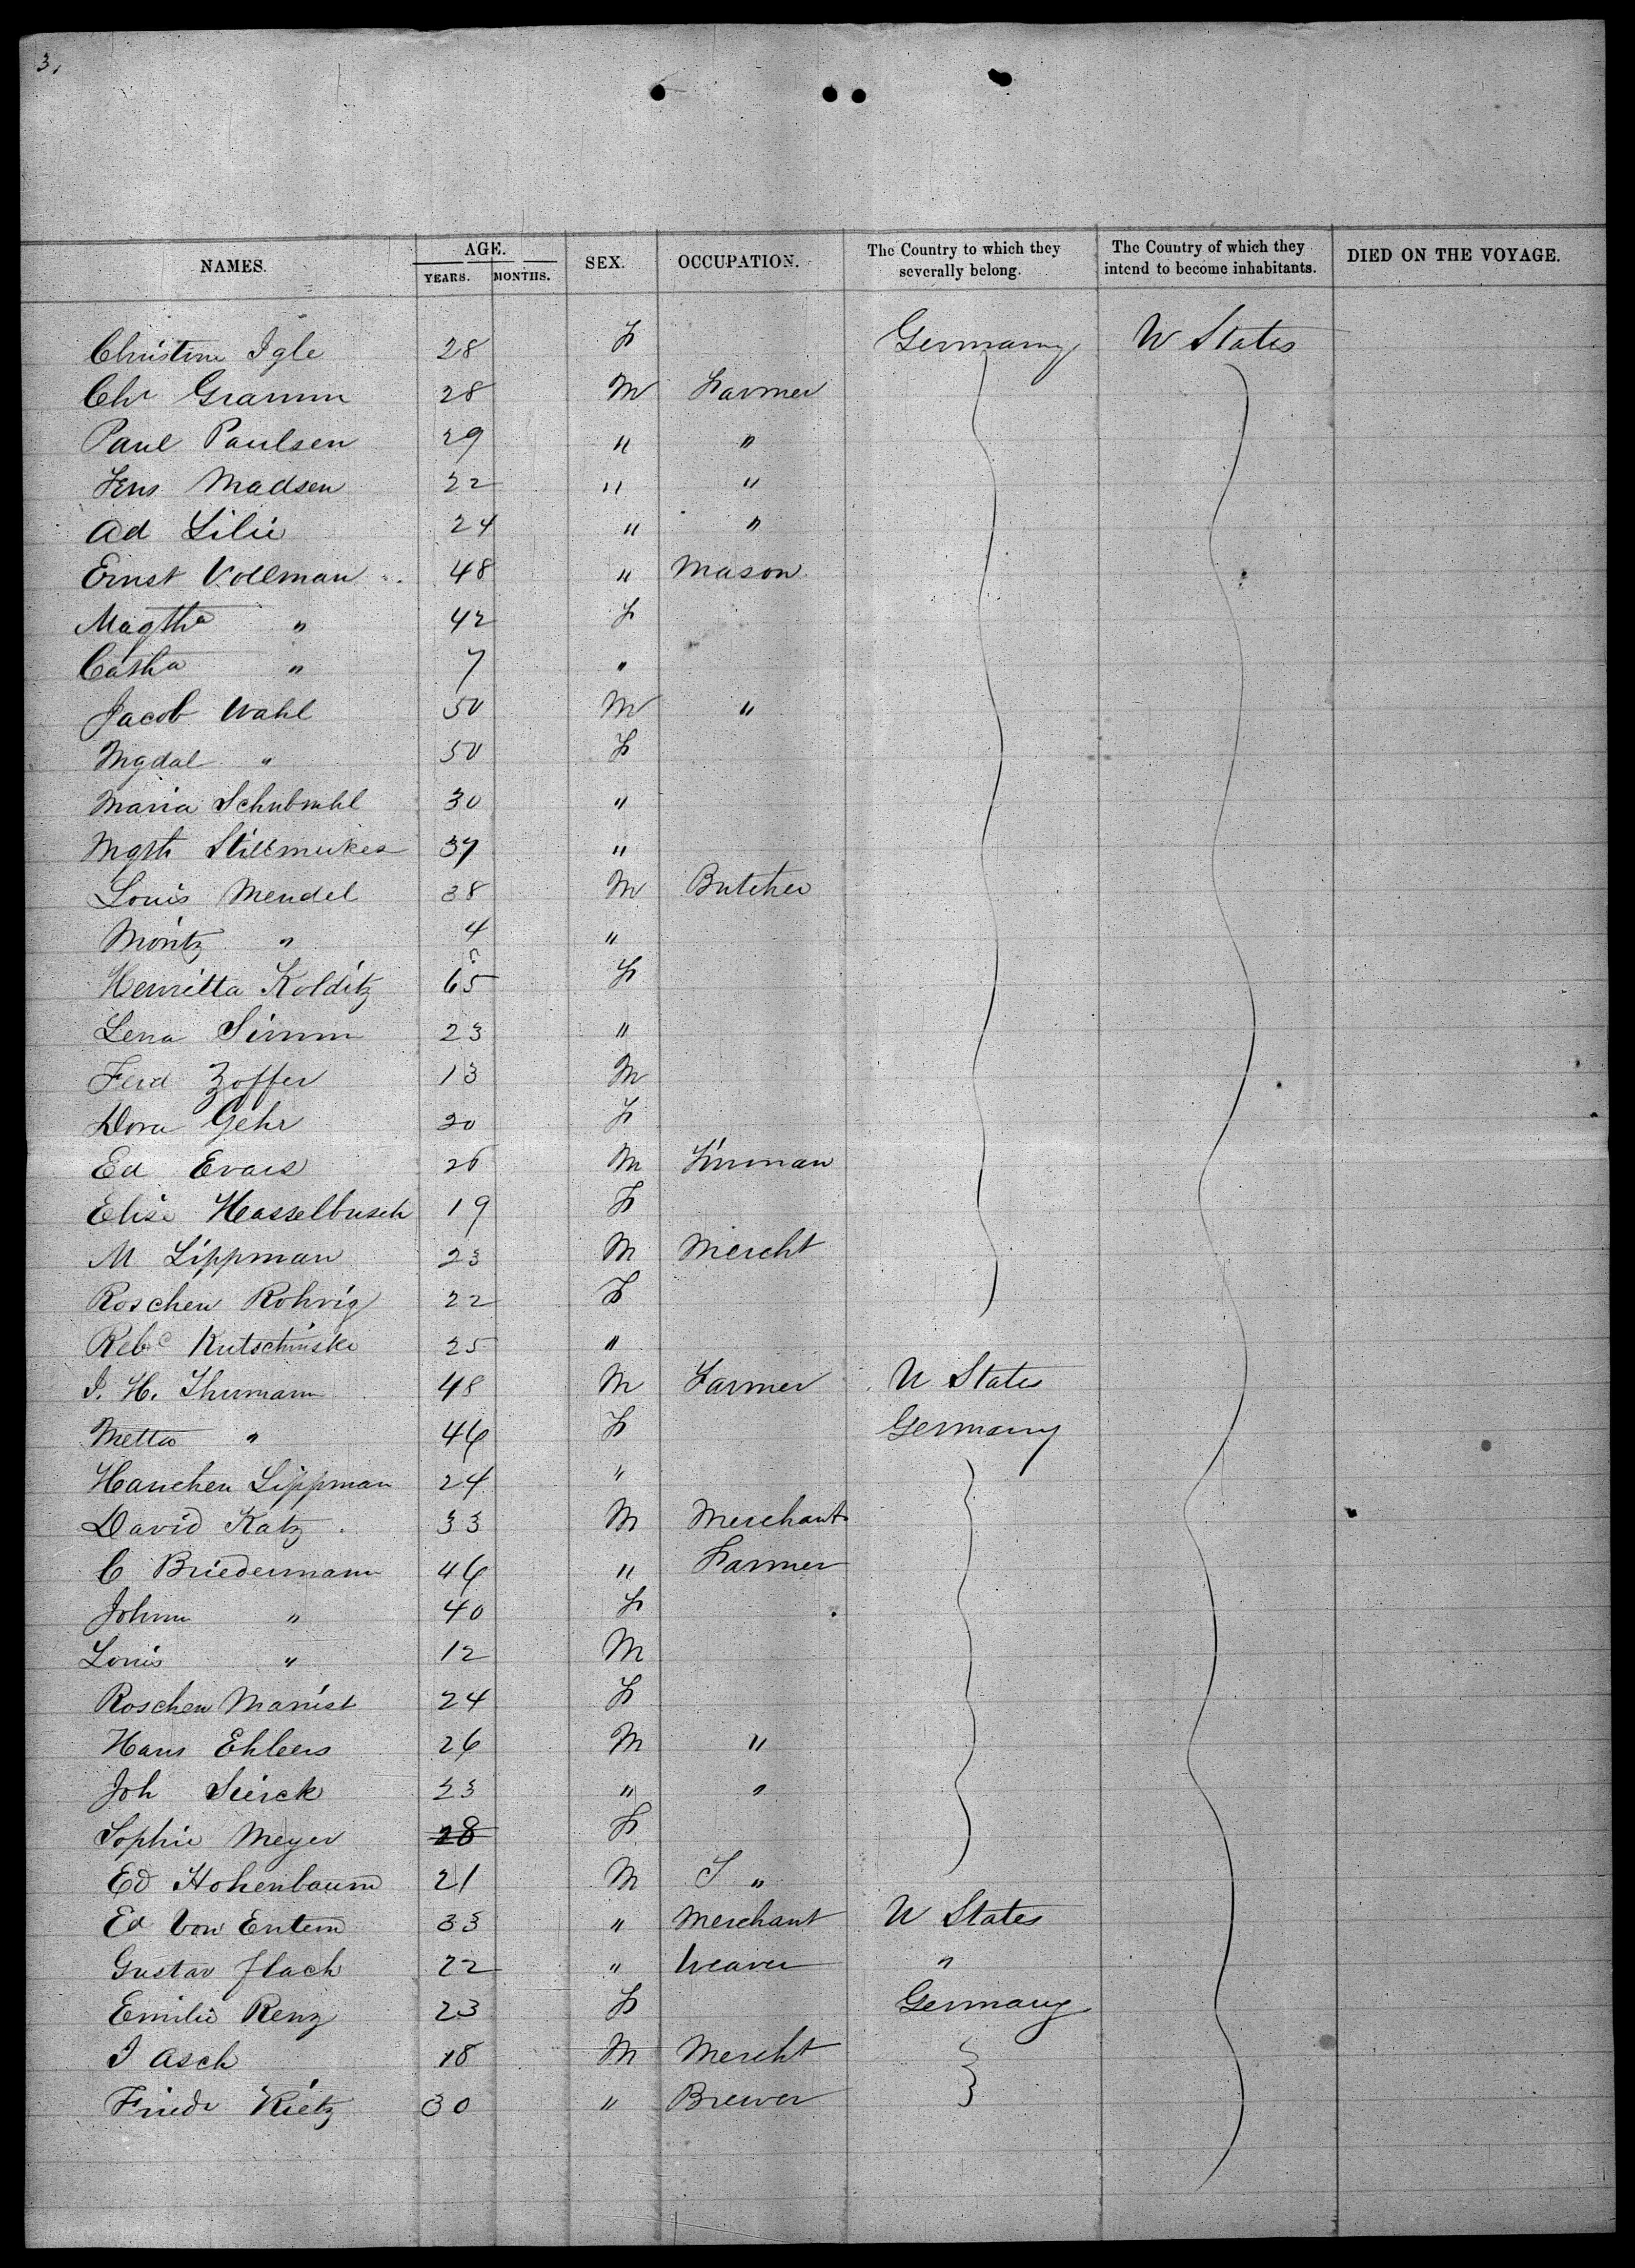 3,
NAMES. AGE. YEARS. MONTHS. SEX. OCCUPATION. The Country to which they severally belong. The Country of which they intend to become inhabitants. DIED ON THE VOYAGE.
Christine Igle 28 F Germany U States
Chr Gramm 28 M Farmer
Paul Paulsen 29 " "
Jens Madsen 22 " "
Ad Lilie 24 " "
Ernst Vollman 48 " Mason
Magtha " 42 F
Catha " 7 "
Jacob Wahl 50 M "
Mgdal " 50 F
Maria 30 "
Mgth 37 "
Louis Mendel 38 M Butcher
Moritz " 4 "
Henrietta Kolditz 65 F
Lena Simm 23 "
Ferd Zoffer 13 M
Dora Gehr 20 F
Ed Evars 26 M
Elise Hasselbusch 19 F
M Lippman 23 M Mercht
Roschen Rohrig 22 F
Rebc Kutschinski 25 "
J. H. Thumann 48 M Farmer U States
Metta " 46 F Germany
Hanchen Lippman 24 "
David Katz 33 M Merchant
C Briedermann 46 " Farmer
Johnn " 40 F
Louis " 12 M
Roschen Marist 24 F
Hans Ehlers 26 M "
Joh Sierck 23 " "
Sophie Meyer 28 F
Ed Hohenbaum 21 M "
Ed Von Entem 33 " Merchant U States
Gustav Flach 22 " Weaver "
Emilie Renz 23 F Germany
J Asch 18 M Mercht
Friedr Rietz 30 " Brewer